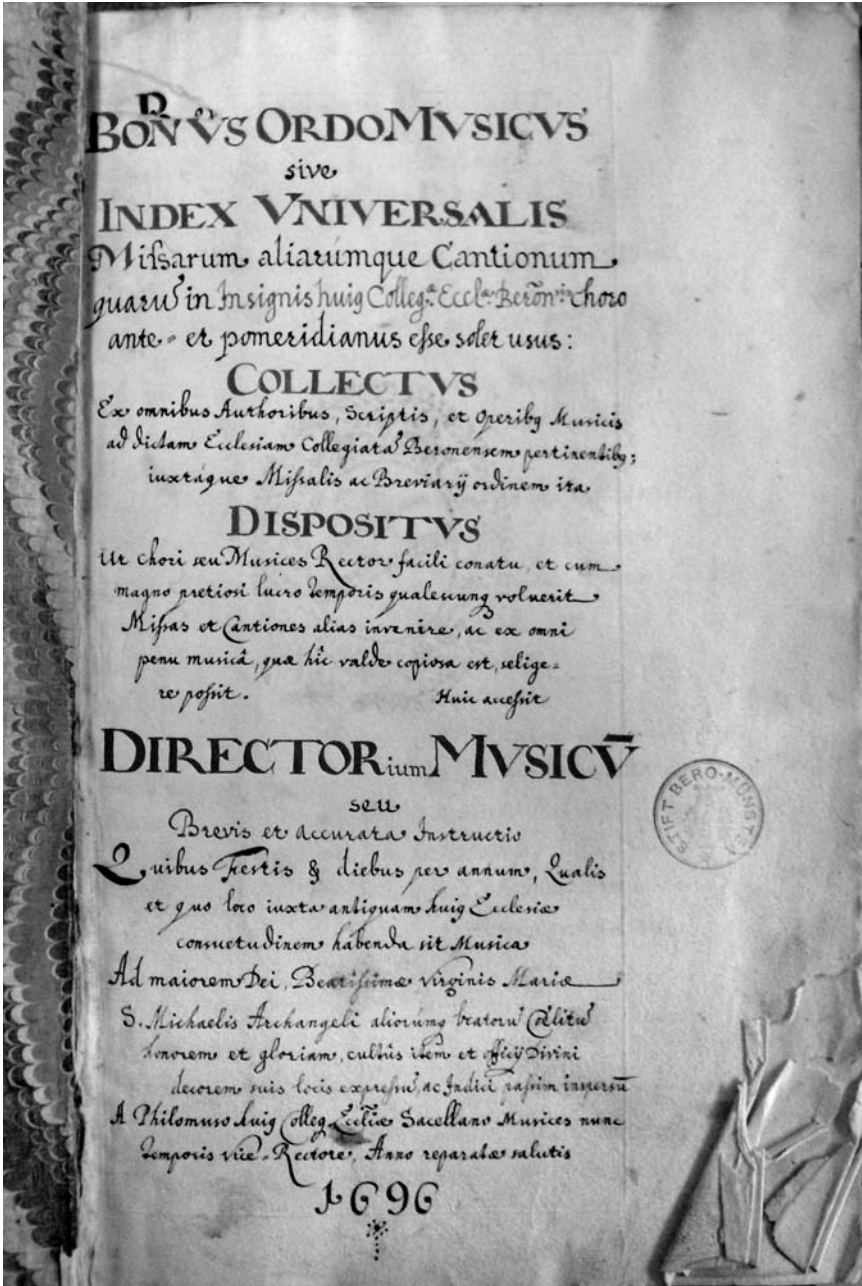 BON̄VS ORDO MVSICVS
sive
INDEX VNIVERSALIS
Missarum aliarúmque Cantionum
quarū in Insignis huiq Colleg.æ Eccl.æ Berōn.is choro
ante- et pomeridianus esse solet usus:
COLLECTVS
Ex omnibus Authoribus, Scriptis, et Operibq Musicis
ad dictam Ecclesiam Collegiatā Beronensem pertinentibq;
iuxtáque Missalis ac Breviarÿ ordinem ita
DISPOSITVS
Ut chori seu Musices Rector facili conatu, et cum
magno pretiosi lucro temporis qualecunq voluerit
Missas et Cantiones alias invenire, ac ex omni
penu musicâ, quæ hîc valde copiosa est, selige-
re possit. Huic accessit
DIRECTORium MVSICV̄
seu
Brevis et accurata Instructio
Quibus Festis & diebus per annum, Qualis
et quo loco iuxta antiquam huiq Ecclesiæ
consuetudinem habenda sit Musica
Ad maiorem Dei, Beatissimæ virginis Mariæ
S. Michaelis Archangeli aliorúmq beatorū Cœlitū
honorem et gloriam, cultûs item et officÿ Divini
decorem suis locis expressū, ac Indici passim inspersū
A Philomuso huiq Colleg. Eccliæ Sacellano Musices nunc
temporis vice-Rectore, Anno reparatæ salutis
1696
STIFT BERO-MÜNSTER